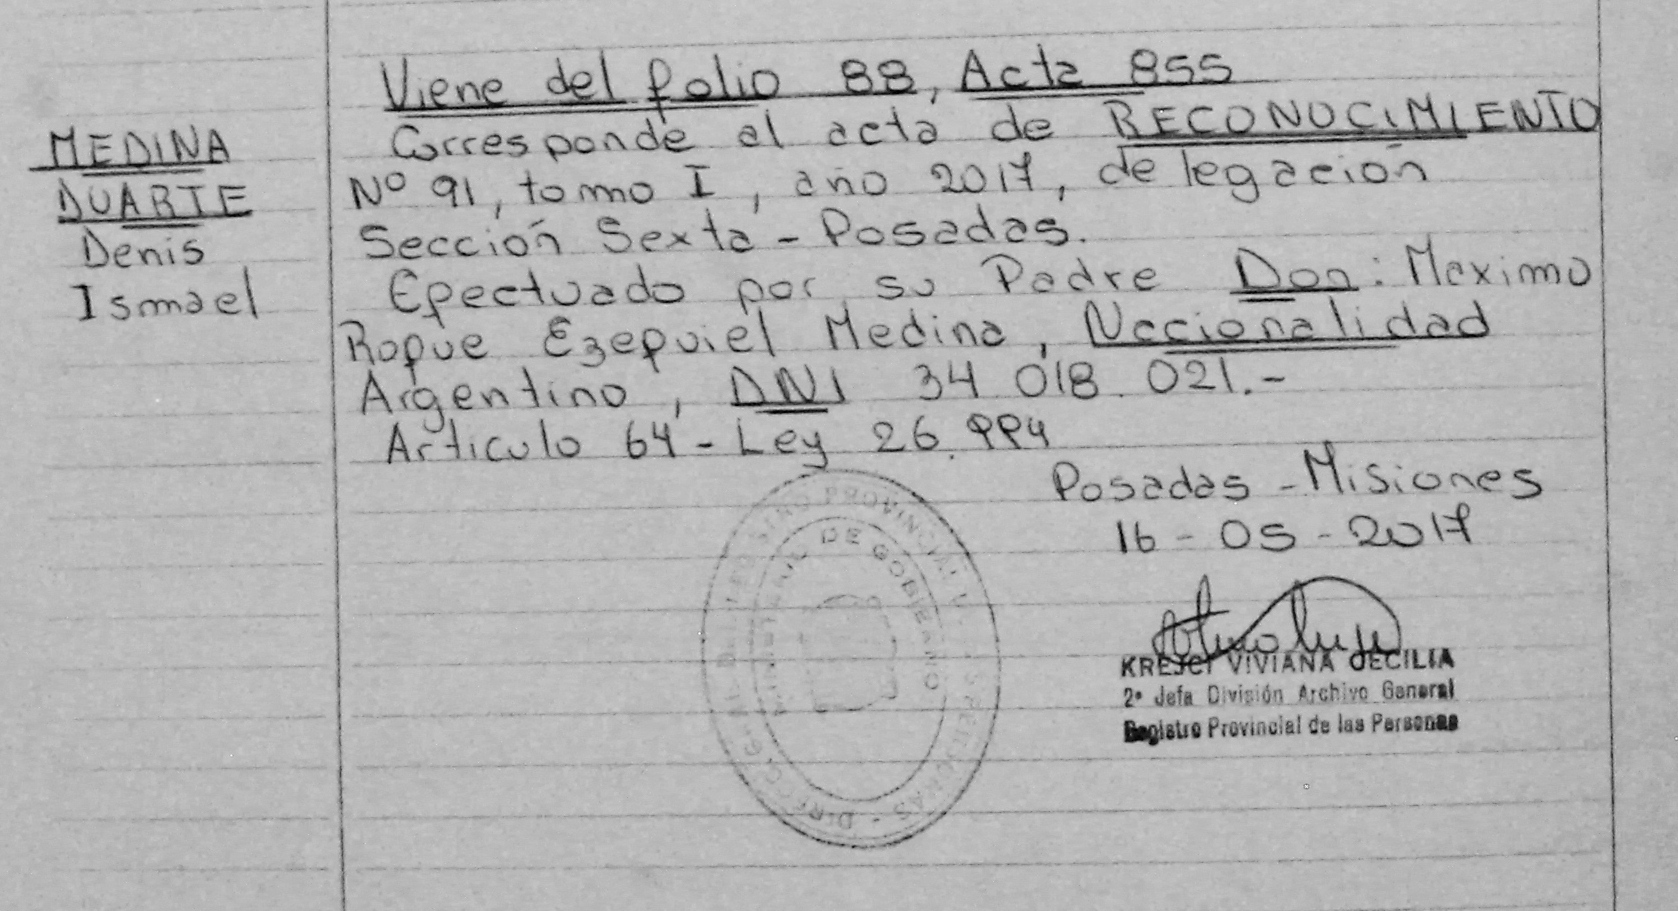 MEDINA
DUARTE
Denis
Ismael
Viene del folio 88, Acta 855
Corresponde al acta de RECONOCIMIENTO
Nº 91, tomo I, año 2017, delegación
Sección Sexta - Posadas.
Efectuado por su Padre Don: Maximo
Roque Ezequiel Medina, Nacionalidad
Argentino, DNI 34 018. 021.-
Articulo 64 - Ley 26.994
Posadas - Misiones
16 - 05 - 2017
KREJCI VIVIANA CECILIA
2º Jefa División Archivo General
Registro Provincial de las Personas
PROVINCIAL
MINISTERIO DE GOBIERNO